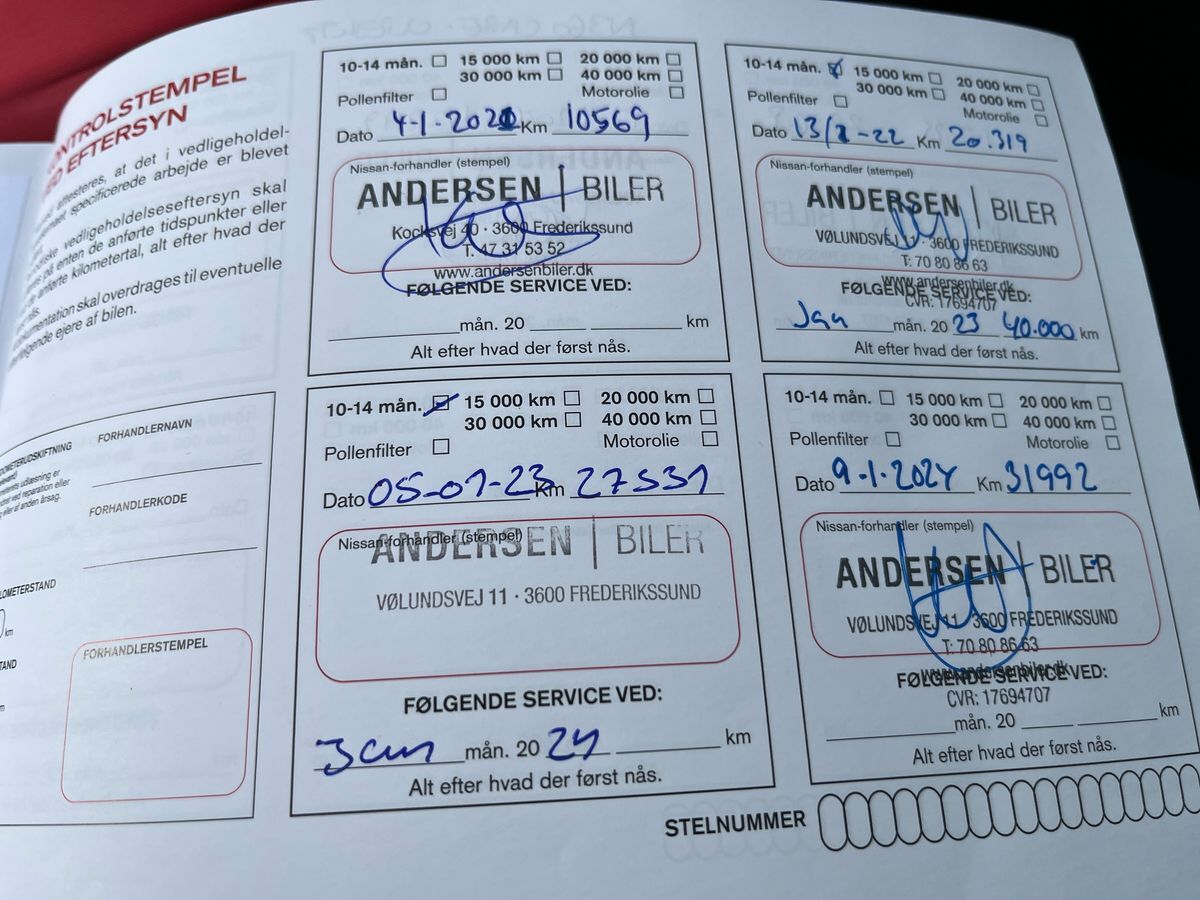 KONTROLSTEMPEL
EFTERSYN
attesteres, at det i vedligeholdel-
specificerede arbejde er blevet
vedligeholdelseseftersyn skal
på enten de anførte tidspunkter eller
anførte kilometertal, alt efter hvad der
skal overdrages til eventuelle
ejere af bilen.
10-14 mån. 15 000 km 20 000 km
30 000 km 40 000 km
Pollenfilter Motorolie
Dato 4-1-2021 Km 10569
Nissan-forhandler (stempel)
ANDERSEN | BILER
Kocksvej 40 · 3600 Frederikssund
T. 47 31 53 52
www.andersenbiler.dk
FØLGENDE SERVICE VED:
mån. 20 km
Alt efter hvad der først nås.
10-14 mån. 15 000 km 20 000 km
30 000 km 40 000 km
Pollenfilter Motorolie
Dato 13/1-22 Km 20.319
Nissan-forhandler (stempel)
ANDERSEN | BILER
VØLUNDSVEJ 11 · 3600 FREDERIKSSUND
T: 70 80 86 63
www.andersenbiler.dk
FØLGENDE SERVICE VED:
CVR: 17694707
Jan mån. 20 23 40.000 km
Alt efter hvad der først nås.
10-14 mån. 15 000 km 20 000 km
30 000 km 40 000 km
Pollenfilter Motorolie
Dato 05-01-23 Km 27531
Nissan-forhandler (stempel)
ANDERSEN | BILER
VØLUNDSVEJ 11 · 3600 FREDERIKSSUND
FØLGENDE SERVICE VED:
Jan mån. 20 24 km
Alt efter hvad der først nås.
10-14 mån. 15 000 km 20 000 km
30 000 km 40 000 km
Pollenfilter Motorolie
Dato 9-1-2024 Km 31992
Nissan-forhandler (stempel)
ANDERSEN | BILER
VØLUNDSVEJ 11 · 3600 FREDERIKSSUND
T: 70 80 86 63
www.andersenbiler.dk
FØLGENDE SERVICE VED:
CVR: 17694707
mån. 20 km
Alt efter hvad der først nås.
FORHANDLERNAVN
FORHANDLERKODE
km
FORHANDLERSTEMPEL
STELNUMMER